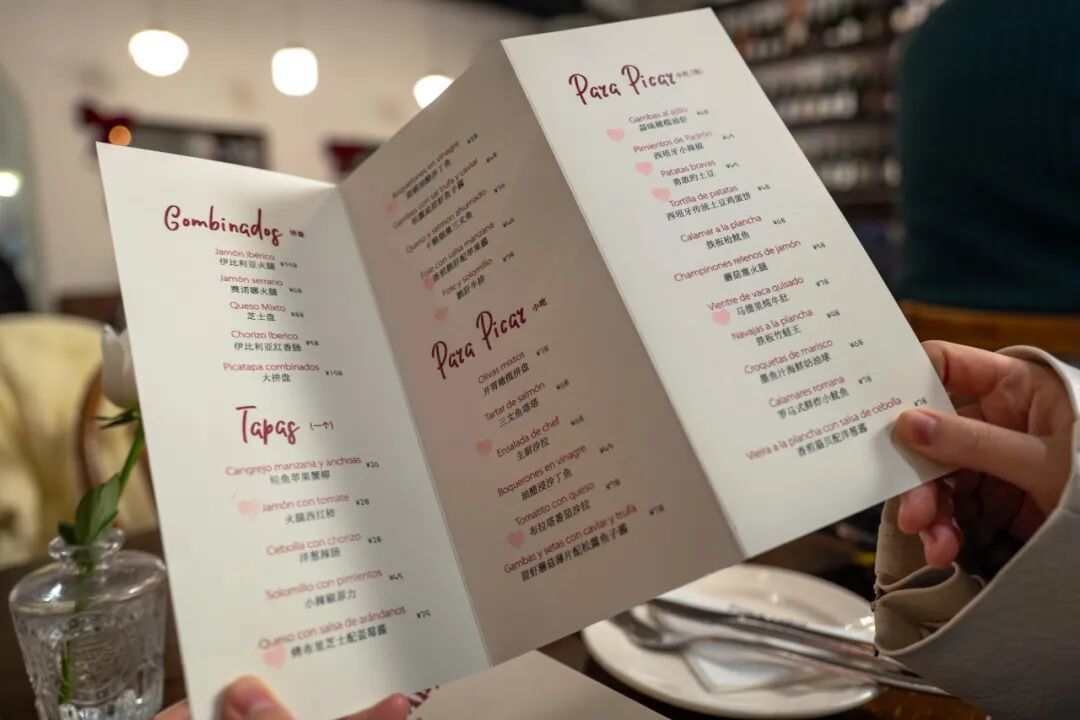 Combinados 拼盘
Jamón Ibérico
伊比利亚火腿
Jamón serrano
赛诺娜火腿
Queso Mixto
芝士盘 ¥88
Chorizo Iberico
伊比利亚红香肠
Picatapa combinados
大拼盘 ¥198
Tapas (一个)
Cangrejo manzana y anchoas
鳀鱼苹果蟹柳 ¥20
Jamón con tomate
火腿西红柿 ¥28
Cebolla con chorizo
洋葱辣肠 ¥28
Solomillo con pimientos
小辣椒菲力 ¥45
Queso con salsa de arándanos
绸布里芝士配蓝莓酱
Boquerones en vinegre
Gambas con sal trufa y caviar
Queso y salmon ahumado
Foie con salsa manzana
香煎鹅肝配苹果酱
Foie y solomillo
鹅肝牛排
Para Picar 小吃
Olivas mixtos
开胃橄榄拼盘
Tartar de salmón
三文鱼塔塔
Ensalada de chef
主厨沙拉
Boquerones en vinagre
油醋浸沙丁鱼
Tomatito con queso ¥78
布拉塔番茄沙拉
Gambas y setas con caviar y trufa ¥78
甜虾蘑菇薄片配松露鱼子酱
Para Picar 小吃
Gambas al ajillo
蒜味橄榄油虾
Pimientos de Padrón
西班牙小辣椒
Patatas bravas
勇敢的土豆
Tortilla de patatas
西班牙传统土豆鸡蛋饼
Calamar a la plancha
铁板枪鱿鱼
Champinones relenos de jamón
蘑菇塞火腿
Vientre de vaca quisado ¥78
马德里炖牛肚
Navajas a la plancha ¥98
铁板竹蛏王
Croquetas de marisco
墨鱼汁海鲜奶油球
Calamares romana ¥78
罗马式鲜炸小鱿鱼
Vieira a la plancha con salsa de cebolla ¥78
香煎扇贝配洋葱酱